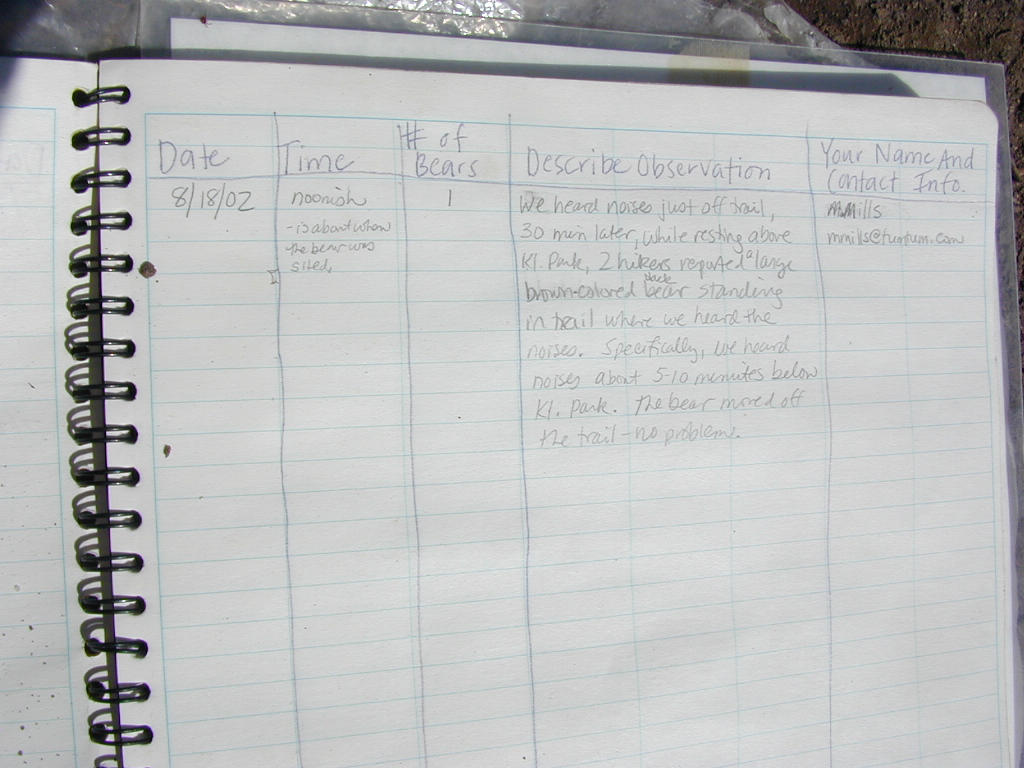 Date
Time
# of
Bears
Describe Observation
Your Name And
Contact Info.
8/18/02
noonish
- is about when
the bear was
sited.
1
We heard noises just off trail,
30 min later, while resting above
Kl. Park, 2 hikers reported a large
brown-colored black bear standing
in trail where we heard the
noises. Specifically, we heard
noises about 5-10 minutes below
Kl. Park. The bear moved off
the trail - no problem.
MMills